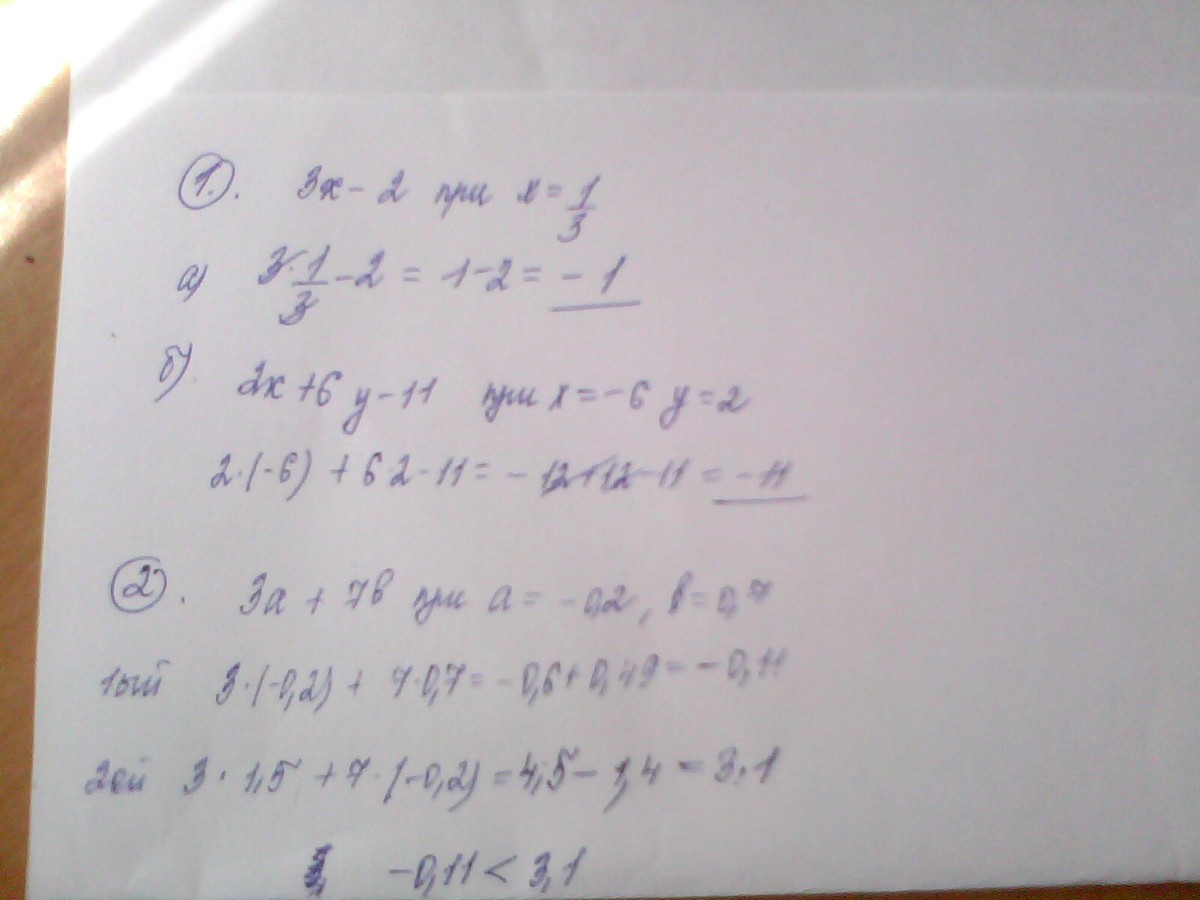 1. 3x - 2 при x = 1/3
а) 3·1/3 - 2 = 1 - 2 = - 1
б) 2x + 6y - 11 при x = - 6 y = 2
2·(-6) + 6 2 - 11 = - 12 + 12 - 11 = - 11
2. 3a + 7в при a = - 0,2, в = 0,7
1ый 3·(-0,2) + 7·0,7 = - 0,6 + 0,49 = - 0,11
2ой 3·1,5 + 7·(-0,2) = 4,5 - 1,4 = 3,1
- 0,11 < 3,1